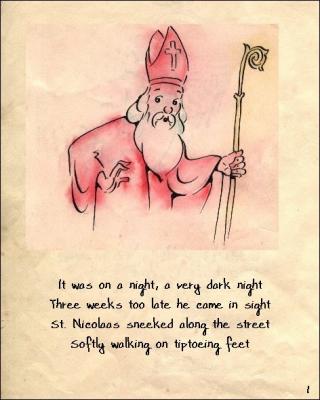 It was on a night, a very dark night
Three weeks too late he came in sight
St. Nicolaas sneeked along the street
Softly walking on tiptoeing feet
1